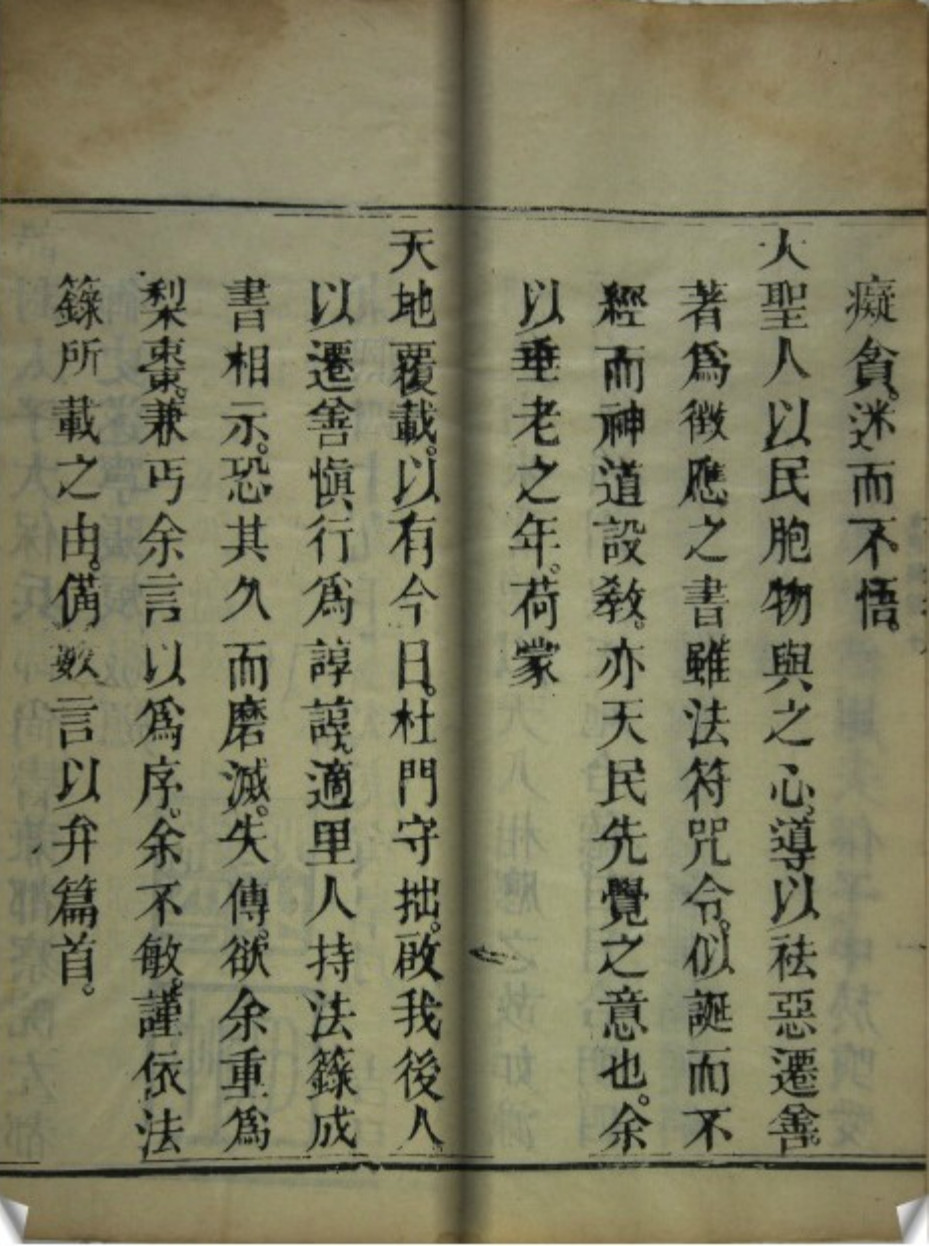 癡貪。迷而不悟。
大聖人以民胞物與之心。導以祛惡遷善。
著爲徵應之書雖法符咒令。似誕而不
經而神道設敎。亦天民先覺之意也。余
以垂老之年。荷蒙
天地覆載。以有今日。杜門守拙。啟我後人
以遷善慎行爲諄諄。適里人持法籙成
書相示。恐其久而磨滅。失傳。欲余重爲
梨棗。兼丐余言以爲序。余不敏。謹依法
籙所載之由。備数言以弁篇首。